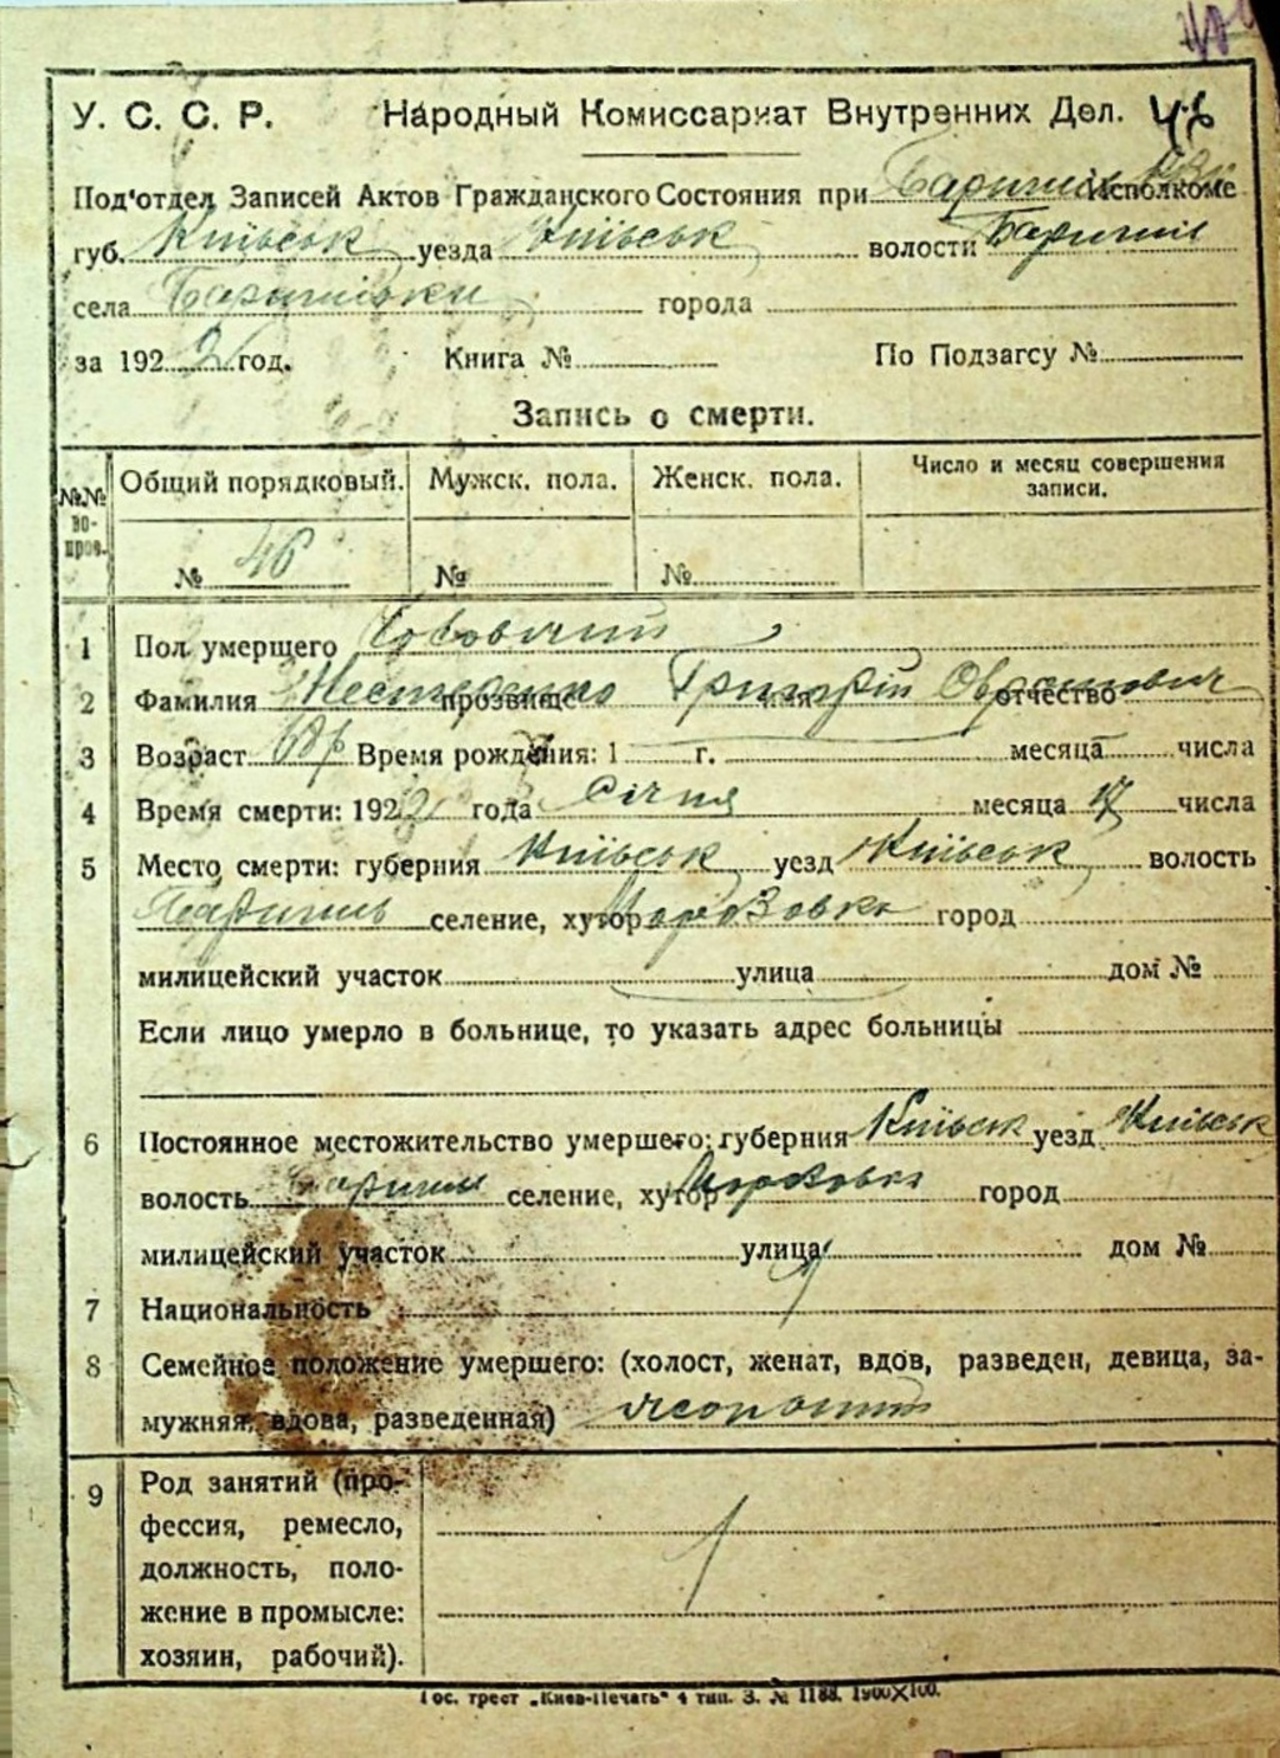 У. С. С. Р. Народный Комиссариат Внутренних Дел. 46
Под'отдел Записей Актов Гражданского Состояния при Исполкоме
губ. Київськ уезда Київськ волости Баришів
села Баришівки города
за 1922 год. Книга № По Подзагсу №
Запись о смерти.
№№ вопрос. Общий порядковый. Мужск. пола. Женск. пола. Число и месяц совершения записи.
№ 46 № №
1 Пол умершего Чоловічий
2 Фамилия Нестеренко прозвище Григорій имя отчество
3 Возраст Время рождения: 1 г. месяца числа
4 Время смерти: 1922 года Січня месяца 17 числа
5 Место смерти: губерния Київськ уезд Київськ волость
Баришів селение, хутор Морозовка город
милицейский участок улица дом №
Если лицо умерло в больнице, то указать адрес больницы
6 Постоянное местожительство умершего: губерния Київськ уезд Київськ
волость Баришів селение, хутор Морозовка город
милицейский участок улица дом №
7 Национальность
8 Семейное положение умершего: (холост, женат, вдов, разведен, девица, за-
мужняя, вдова, разведенная) жонатий
9 Род занятий (про-
фессия, ремесло,
должность, поло-
жение в промысле:
хозяин, рабочий).
Гос. трест „Киев-Печать" 4 тип. З. № 1188. 1900×100.